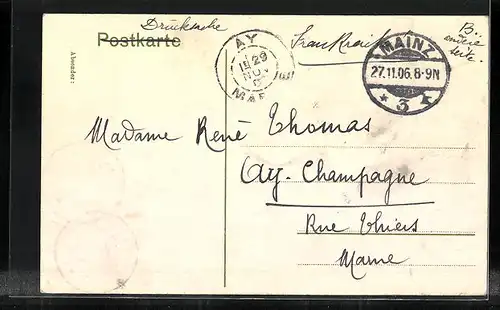 Drucksache
Postkarte
Absender:
Frankreich
B..
andere
Seite.
AY
15 29
NOV
MAR
MAINZ
27.11.06.8-9N
* 3 *
Madame René Thomas
Ay-Champagne
Rue Thiers
Marne